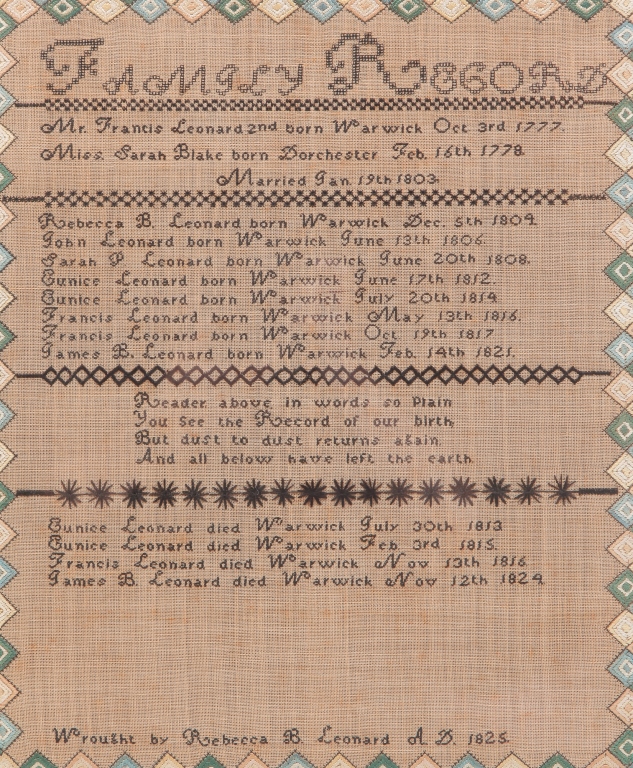 FAMILY RECORD
Mr. Francis Leonard 2nd born Warwick Oct 3rd 1777.
Miss. Sarah Blake born Dorchester Feb. 16th 1778.
Married Jan. 19th 1803.
Rebecca B. Leonard born Warwick Dec. 5th 1804.
John Leonard born Warwick June 13th 1806.
Sarah P. Leonard born Warwick June 20th 1808.
Eunice Leonard born Warwick June 17th 1812.
Eunice Leonard born Warwick July 20th 1814.
Francis Leonard born Warwick May 13th 1816.
Francis Leonard born Warwick Oct 19th 1817
James B. Leonard born Warwick Feb. 14th 1821.
Reader above in words so plain
You see the Record of our birth
But dust to dust returns again.
And all below have left the earth.
Eunice Leonard died Warwick July 30th 1813
Eunice Leonard died Warwick Feb 3rd 1815.
Francis Leonard died Warwick Nov 13th 1816
James B. Leonard died Warwick Nov 12th 1824
Wrought by Rebecca B. Leonard A. D. 1825.